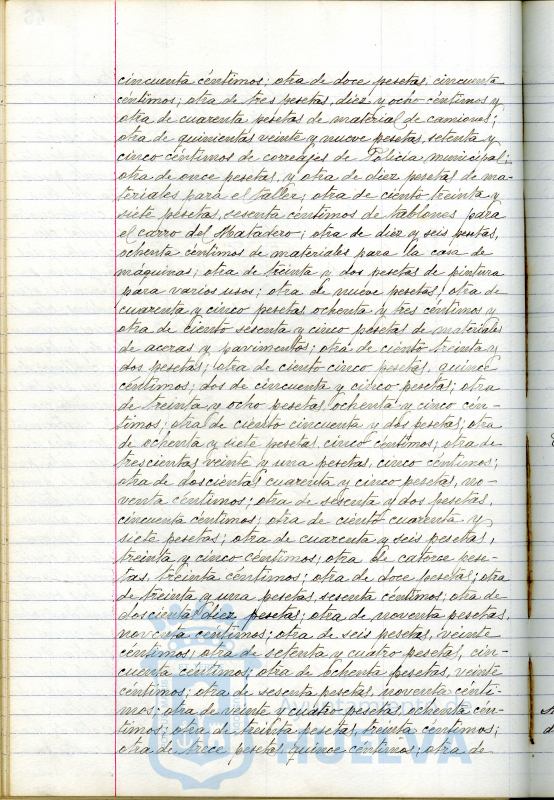 cincuenta céntimos; otra de doce pesetas, cincuenta
céntimos; otra de tres pesetas, diez y ocho céntimos y
otra de cuarenta pesetas de material de camiones;
otra de quinientas veinte y nueve pesetas, setenta y
cinco céntimos de correajes de Policía municipal;
otra de once pesetas, y otra de diez pesetas de ma-
teriales para el taller; otra de ciento treinta y
siete pesetas, sesenta céntimos de tablones para
el carro del Matadero; otra de diez y seis pesetas,
ochenta céntimos de materiales para la casa de
máquinas; otra de treinta y dos pesetas de pintura
para varios usos; otra de nueve pesetas; otra de
cuarenta y cinco pesetas ochenta y tres céntimos y
otra de ciento sesenta y cinco pesetas de materiales
de aceras y pavimentos; otra de ciento treinta y
dos pesetas; otra de ciento cinco pesetas, quince
céntimos; dos de cincuenta y cinco pesetas; otra
de treinta y ocho pesetas, ochenta y cinco cén-
timos; otra de ciento cincuenta y dos pesetas; otra
de ochenta y siete pesetas, cinco céntimos; otra de
trescientas veinte y una pesetas, cinco céntimos;
otra de doscientas cuarenta y cinco pesetas, no-
venta céntimos; otra de sesenta y dos pesetas,
cincuenta céntimos; otra de ciento cuarenta y
siete pesetas; otra de cuarenta y seis pesetas,
treinta y cinco céntimos; otra de catorce pese-
tas, treinta céntimos; otra de doce pesetas; otra
de treinta y una pesetas, sesenta céntimos; otra de
doscientas diez pesetas; otra de noventa pesetas,
noventa céntimos; otra de seis pesetas, veinte
céntimos; otra de setenta y cuatro pesetas, cin-
cuenta céntimos; otra de ochenta pesetas, veinte
céntimos; otra de sesenta pesetas, noventa cénti-
mos; otra de veinte y cuatro pesetas, ochenta cén-
timos; otra de treinta pesetas, treinta céntimos;
otra de trece pesetas, quince céntimos; otra de
Ayuntamiento de
HUELVA